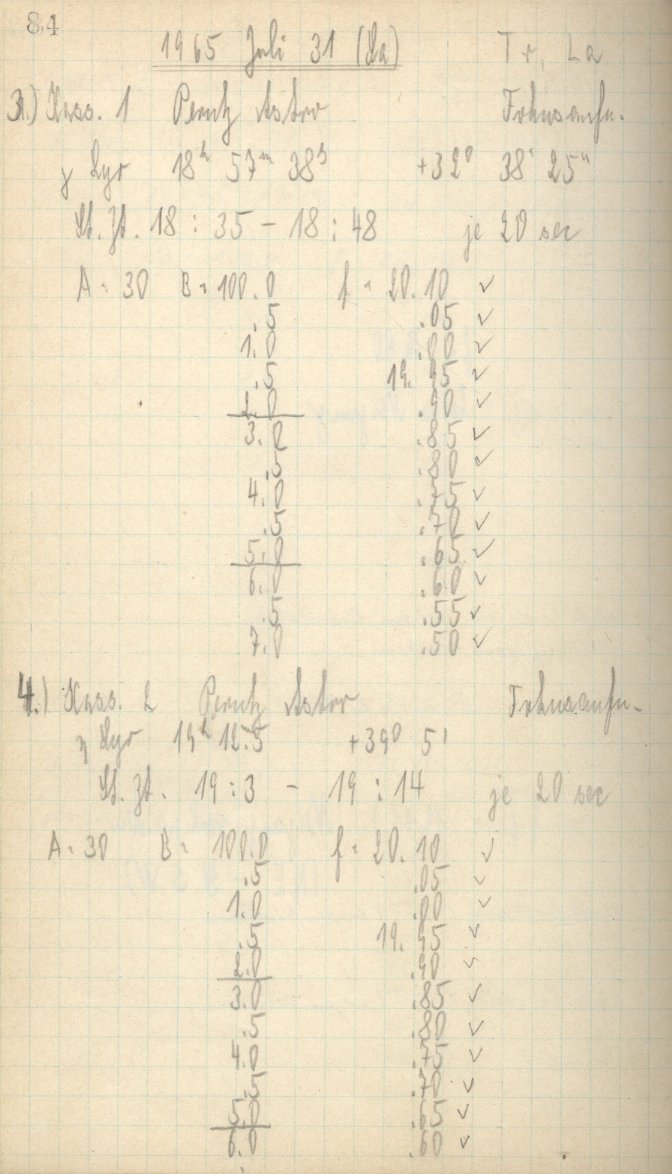 84
1965 Juli 31 (Sa) Tr, La
3.) Kass. 1 Perutz Astro Fokusaufn.
γ Lyr 18h 57m 38s +32° 38' 25"
St. Zt. 18 : 35 – 18 : 48 je 20 sec
A = 30 B = 100.0 f = 20.10 ✓
.5 .05 ✓
1.0 .00 ✓
.5 19.95 ✓
2.0 .90 ✓
3.0 .85 ✓
.5 .80 ✓
4.0 .75 ✓
.5 .70 ✓
5.0 .65 ✓
6.0 .60 ✓
.5 .55 ✓
7.0 .50 ✓
4.) Kass. 2 Perutz Astro Fokusaufn.
η Lyr 19h 12.5 +39° 5'
St. Zt. 19 : 3 – 19 : 14 je 20 sec
A = 30 B = 100.0 f = 20.10 ✓
.5 .05 ✓
1.0 .00 ✓
.5 19.95 ✓
2.0 .90 ✓
3.0 .85 ✓
.5 .80 ✓
4.0 .75 ✓
.5 .70 ✓
5.0 .65 ✓
6.0 .60 ✓